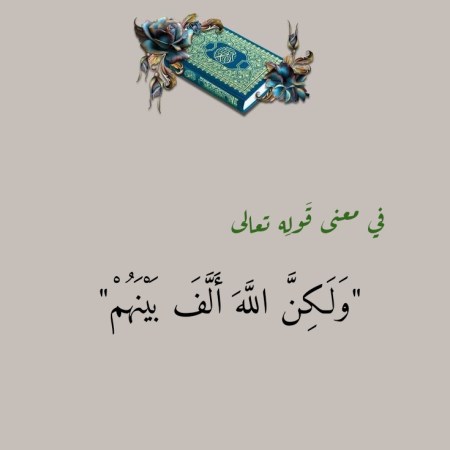 في معنى قَولِه تعالى
"وَلَكِنَّ اللَّهَ أَلَّفَ بَيْنَهُمْ"